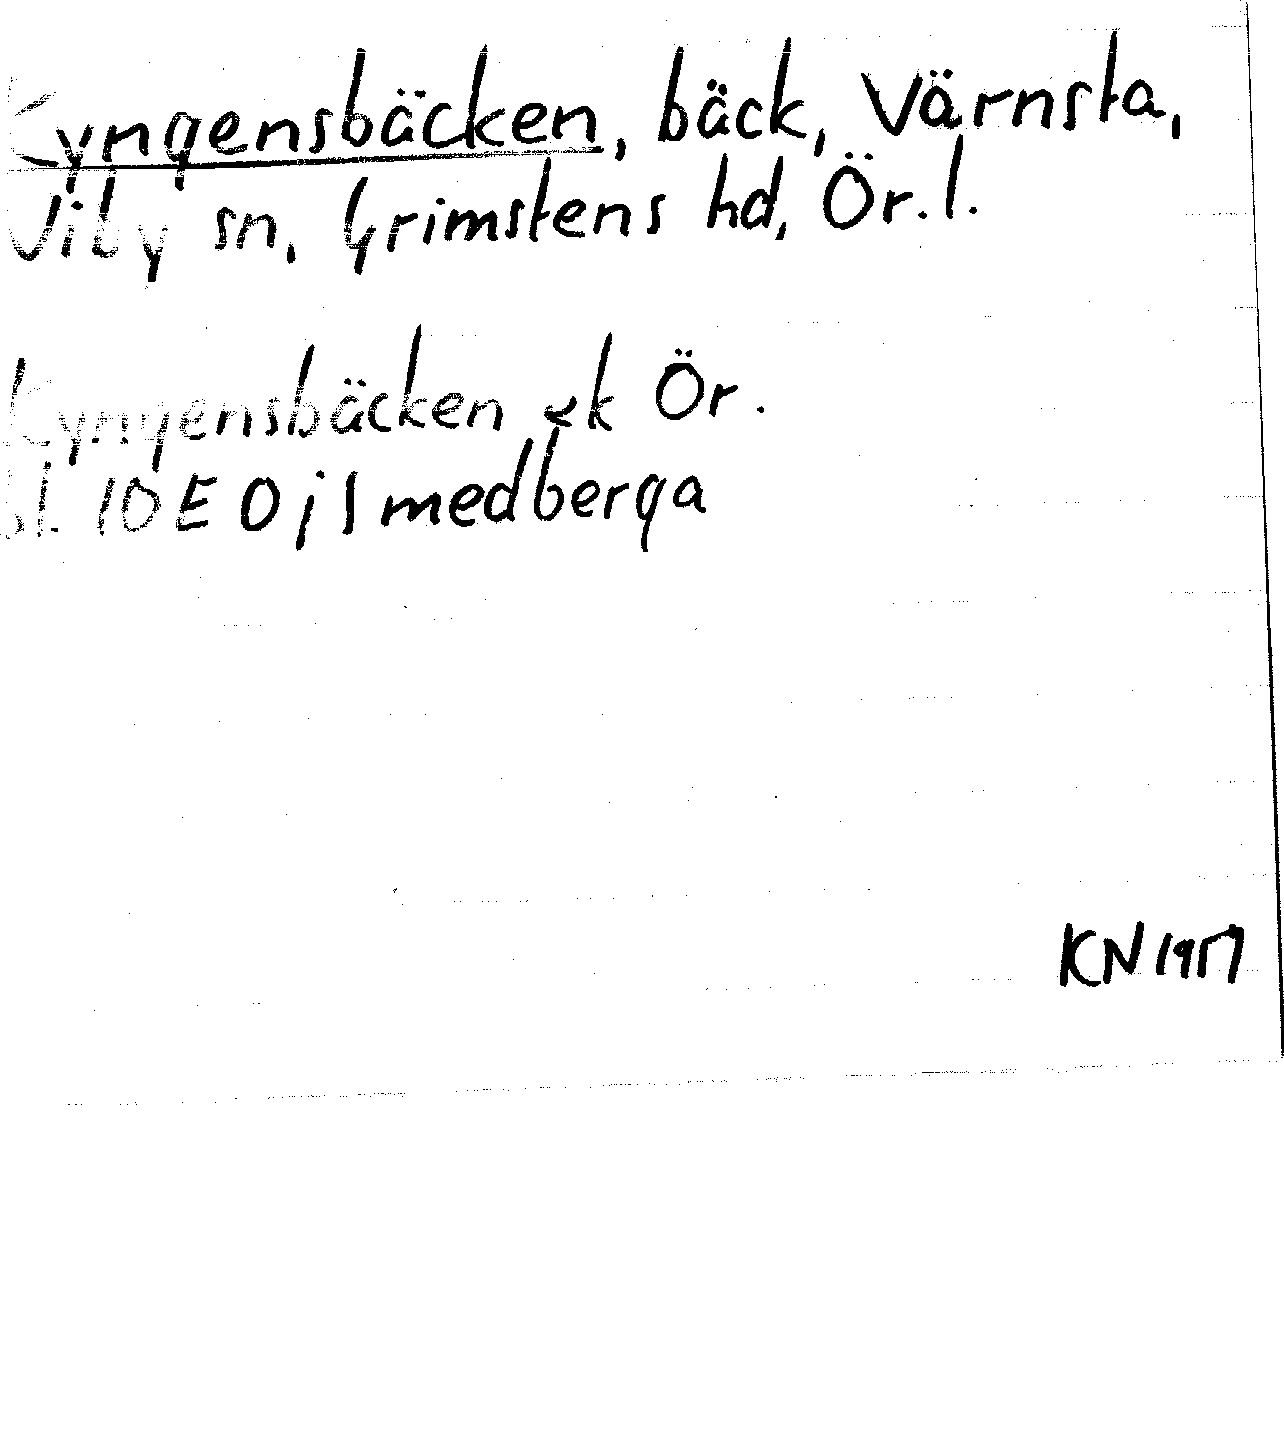 Kyngensbäcken, bäck, Värnsta,
Viby sn, Grimstens hd, Ör. l.
Kyngensbäcken ek Ör.
bl. 10 E 0 j Smedberga
KN 1957